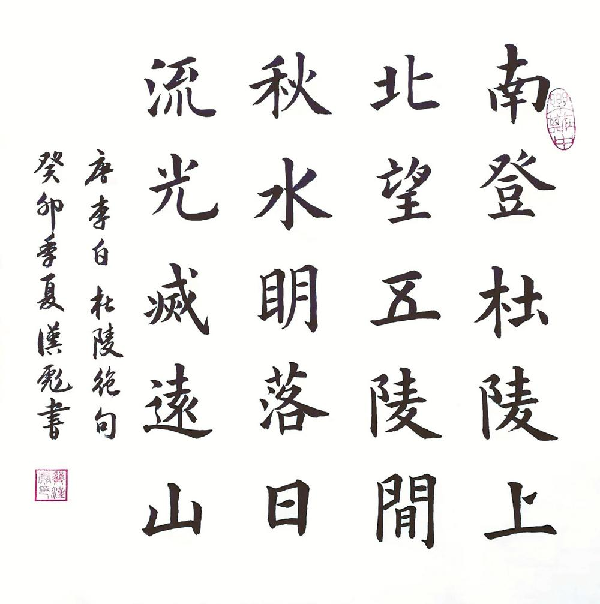 南登杜陵上
北望五陵閒
秋水明落日
流光滅遠山
唐李白杜陵絶句
癸卯季夏漢彪書